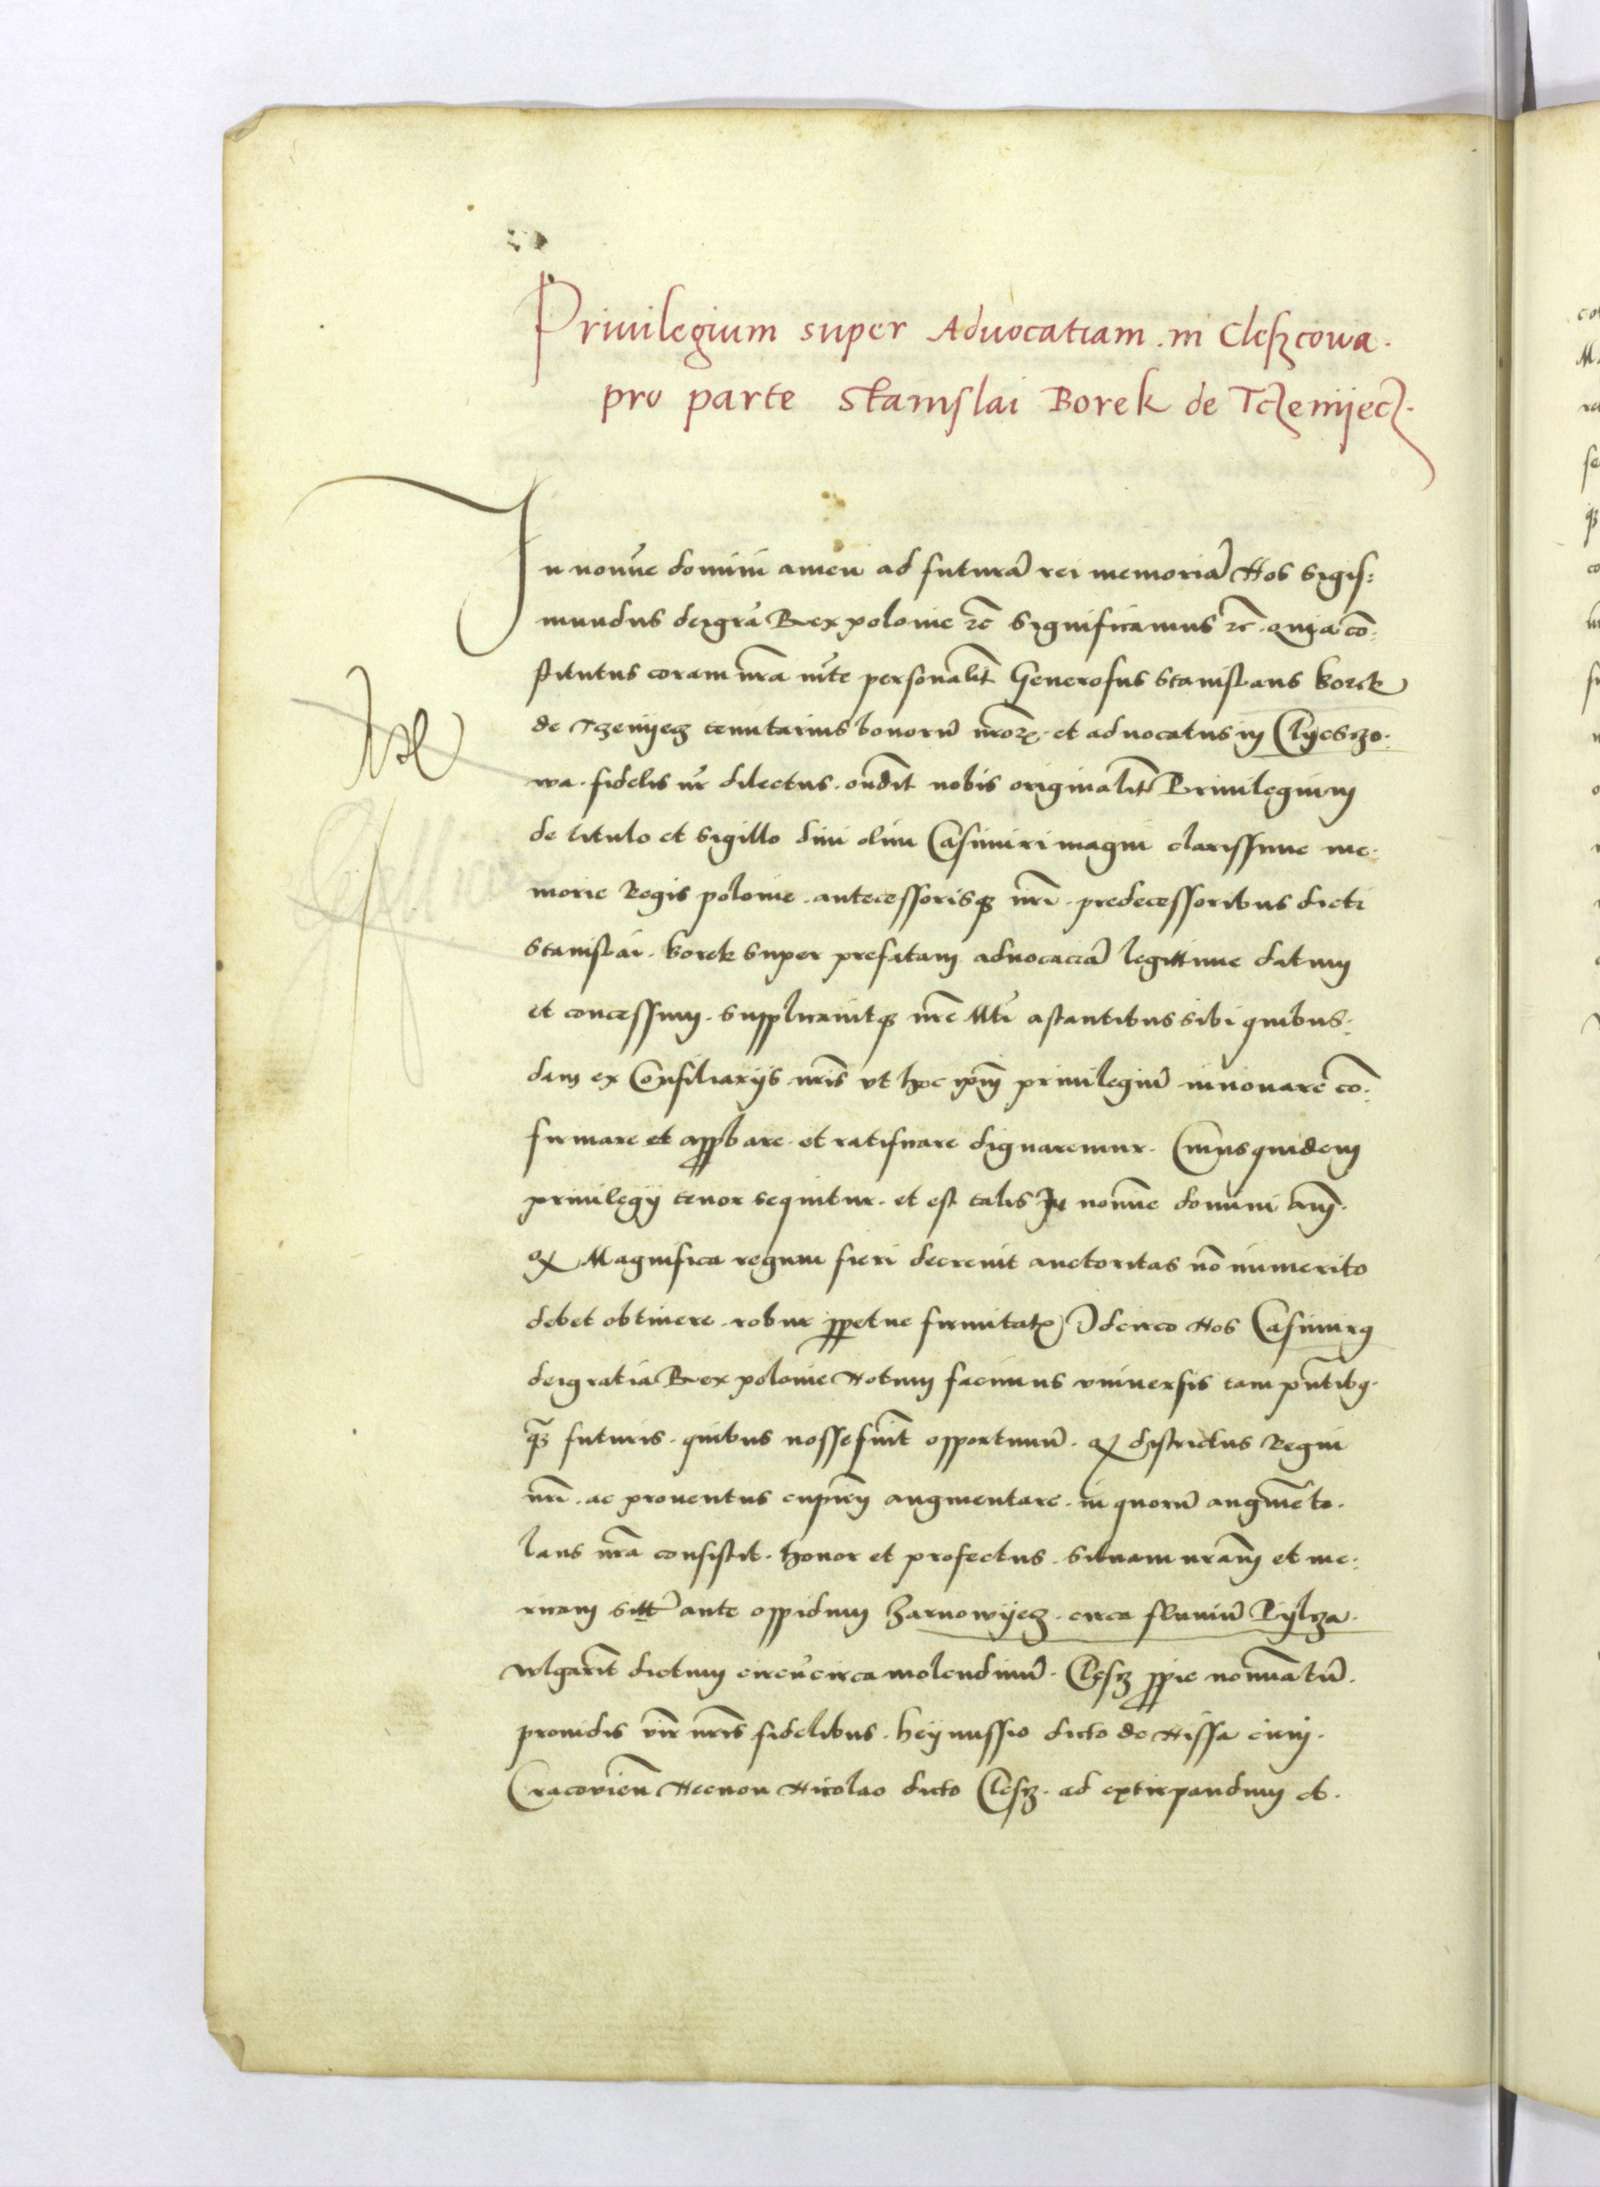 Priuilegium super Aduocatiam in Cleſzcowa.
pro parte Stanislai Borek de Tczemijecz.
In noīe domini amen ad futurā rei memoriā Nos Sigis:
mundus deigrā Rex polonie ⁊c̄ Significamus ⁊c̄. quia cō:
stitutus coram nrā mte personalit̄ Generosus Stanislaus Borek
de Tczemijecz tenutarius bonorū nrōꝝ. et aduocatus in Clijeszo:
wa. fidelis nr̄ dilectus. ondit nobis originalit̄ Priuilegium
de titulo et sigillo diui olim Casimiri magni clarissime me:
morie Regis polonie. antecessorisqꝫ nrī. predecessoribus dicti
Stanislai. Borek super prefatam aduocaciā legittime datum
et concessum. supplicauitqꝫ nrē Mti astantibus sibi quibus:
dam ex Consiliarijs nrīs vt hoc ipm̄ priuilegiū innouare cō:
firmare et appbare. et ratificare dignaremur. Cuiusquidem
priuilegij tenor sequitur. et est talis In noīe domini am̄.
Magnifica regum fieri decreuit auctoritas nō immerito
debet obtinere robur ppetue firmitatꝭ Idcirco Nos Casimirꝰ
deigratia Rex polonie Notum facimus vniuersis tam pn̄tibꝰ.
qꝫ futuris. quibus nosse fuit̄ opportunū. districtus Regni
nrī. ac prouentus cupien̄ augmentare. in quorū augmēto.
laus nrā consistit. honor et profectus. siluam nrām et me:
ricam sitt̄ ante oppidum Zarnowijecz. circa fluuiū Pijlcza.
wlgarit̄ dictum circūcirca molendinū. Clesz ppie noīatū.
prouidis vir̄ nrīs fidelibus. heijnussio dicto de Nissa ciui.
Cracouien̄ Necnon Nicolao dicto Clesz. ad extirpandum et.